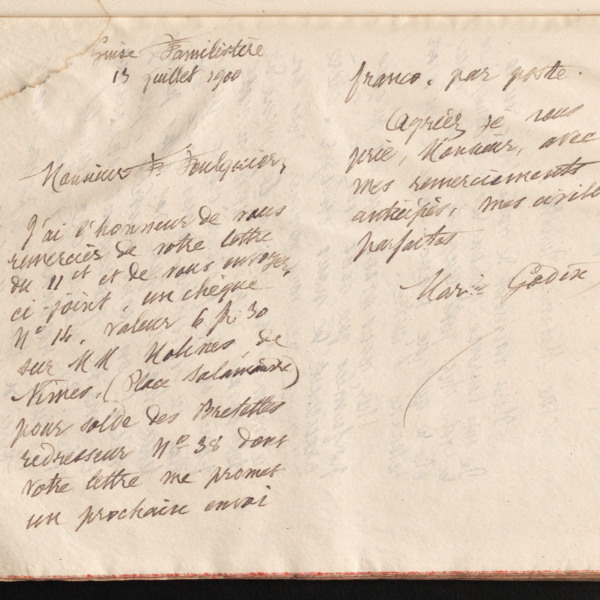 Guise Familistère
13 juillet 1900
Monsieur F. Foulquier,
J'ai l'honneur de vous
remercier de votre lettre
du 11 ct et de vous envoyer,
ci-joint, un chèque
N° 14, valeur 6 fr. 30
sur MM Molines, de
Nîmes. (Place Salamandre)
pour solde des Bretelles
redresseur N° 38 dont
votre lettre me promet
un prochain envoi
franco, par poste.
Agréez je vous
prie, Monsieur, avec
mes remerciements
anticipés, mes civilités
parfaites
Marie Godin